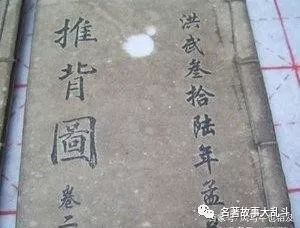 洪武叁拾陆年孟
推背圖
卷二
名著故事大乱斗